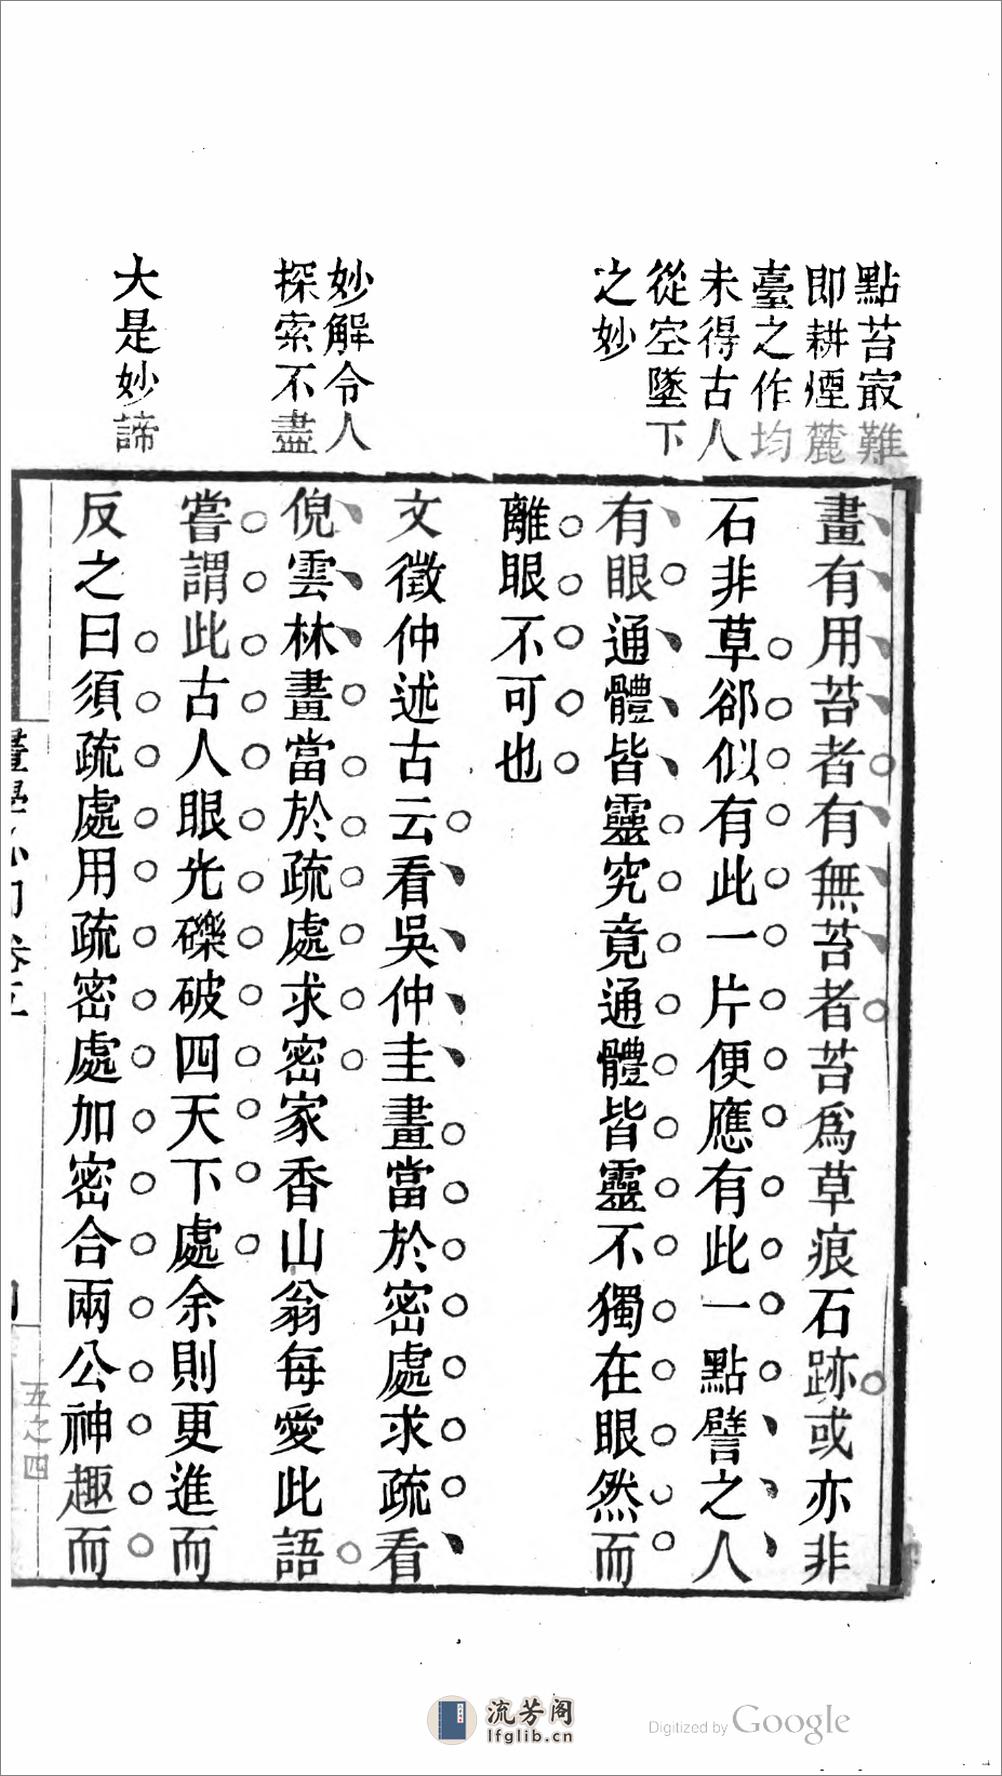 點苔㝡難
即耕煙麓
臺之作均
未得古人
從空墜下
之妙
妙解令人
探索不盡
大是妙諦
畫有用苔者有無苔者苔爲草痕石跡或亦非
石非草郤似有此一片便應有此一點譬之人
有眼通體皆靈究竟通體皆靈不獨在眼然而
離眼不可也
文徵仲述古云看吳仲圭畫當於密處求疏看
倪雲林畫當於疏處求密家香山翁每愛此語
嘗謂此古人眼光礫破四天下處余則更進而
反之曰須疏處用疏密處加密合兩公神趣而
五之四
流芳阁
lfglib.cn
Digitized by Google